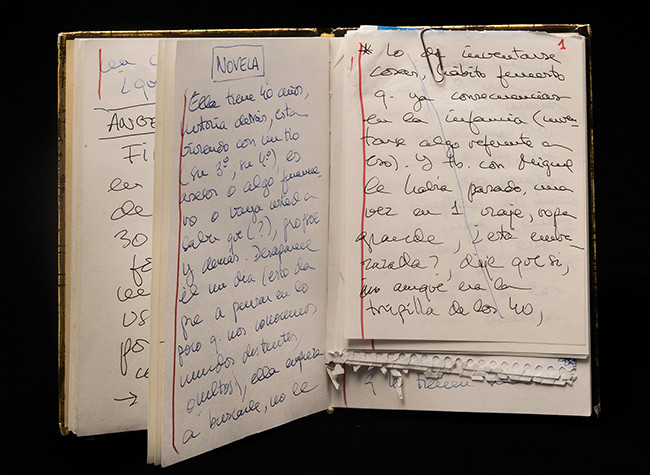 NOVELA
Ella tiene 40 años,
historia detrás, está
viviendo con un tío
(su 3º, su 4º), es
asesor o algo, financie
ro o vaya usted a
saber qué (?),
y demás. Desaparece
él un día (esto da
pie a pensar en lo
poco q. nos conocemos
mundos distintos,
ocultos), ella empieza
a buscarle, no le
1
* Lo de inventarse
cosas, hábito funesto
q. ya consecuencias
en la infancia (inven
tarse algo referente a
eso). Y tb. con Miguel
le había pasado, una
vez en 1 viaje, ropa
grande, ¿está emba
razada?, dije que sí,
aunque era la
tripilla de los 40,
ANGE
FI
en
de
30
fe
us
po
→